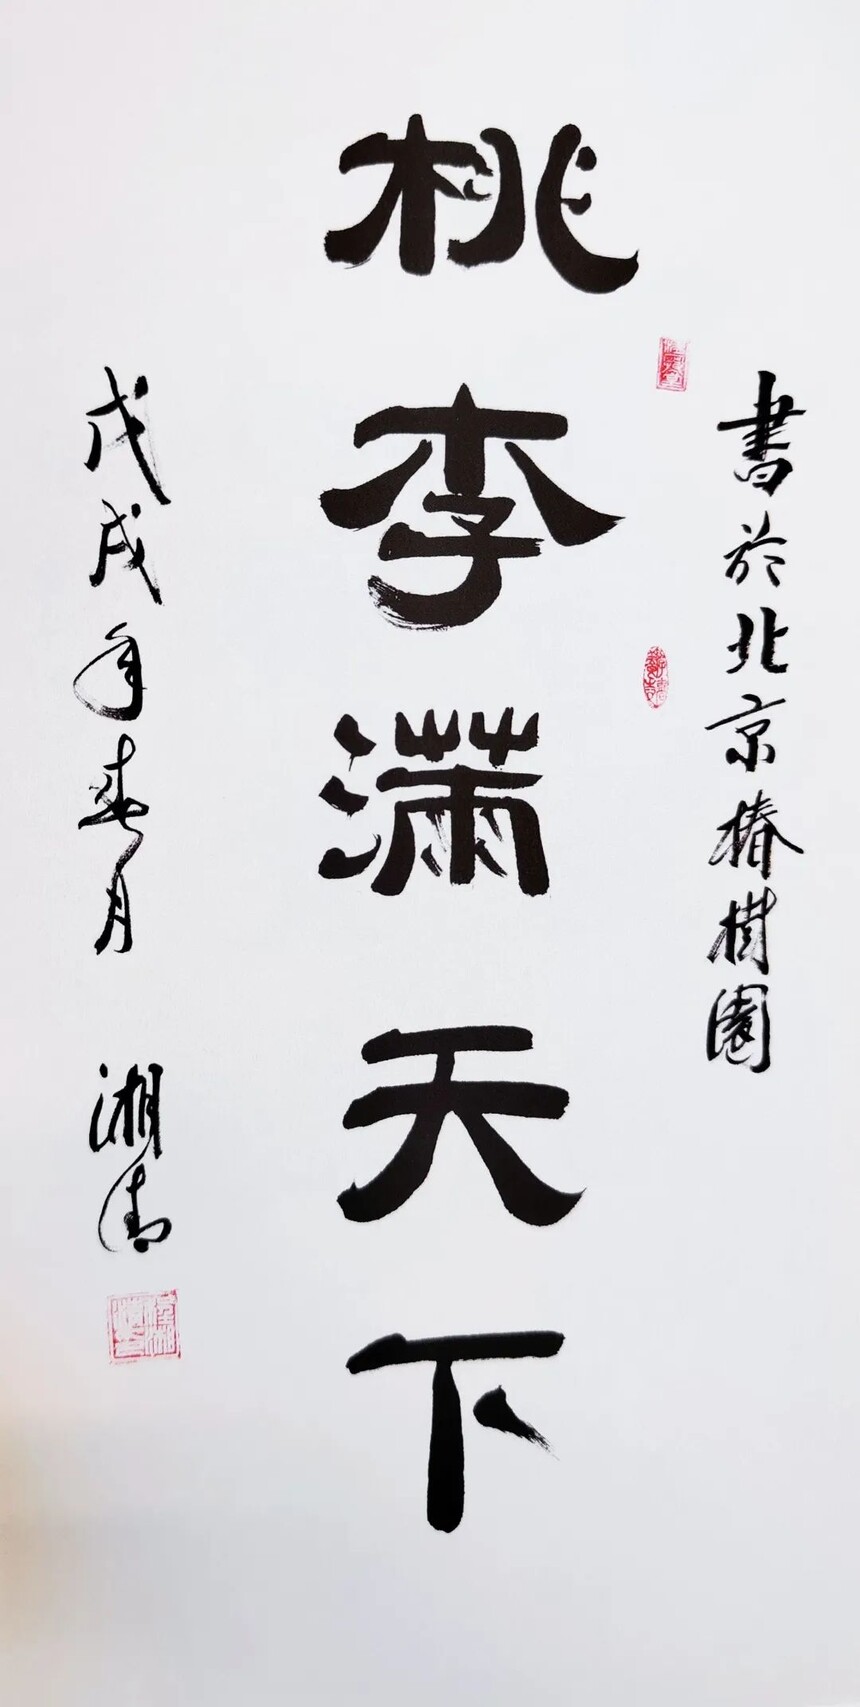 書於北京椿樹園
桃李滿天下
戊戌年春月 湘清